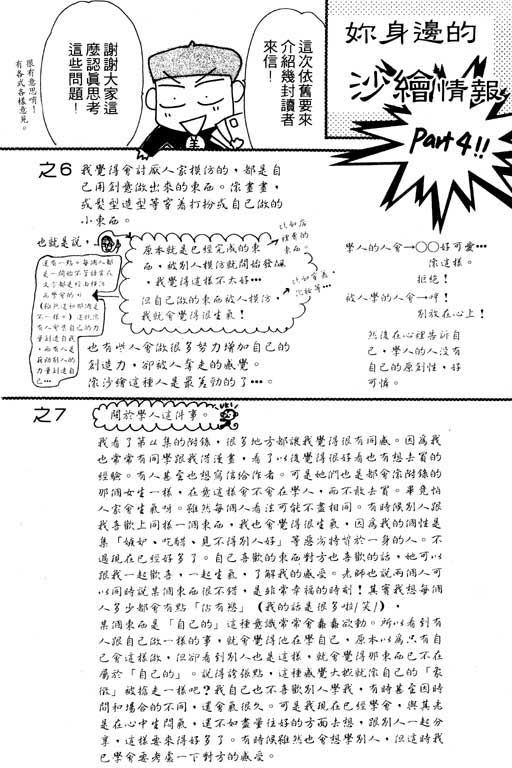 妳身邊的
沙繪情報
Part 4!!
這次依舊要來
介紹幾封讀者
來信！
謝謝大家這
麼認真思考
這些問題！
很有意思唷！
有各式各樣意見。
之6
我覺得會討厭人家模仿的，都是自
己用創意做出來的東西。像畫畫，
或髮型造型等穿着打扮或自己做的
小東西。
也就是說，
原本就是已經完成的東
西，被別人模仿就開始發飆
，我覺得這樣不太好…
但自己做的東西被人模仿，
我就會覺得很生氣！
比如店
裡賣的
東西。
也有些人會做很多努力增加自己的
創造力，卻被人奪走的感覺。
像沙繪這種人是最差勁的了…。
學人的人會→○○好可愛…
像這樣。
拒絕！
被人學的人會→哼！
別放在心上！
然後在心裡告訴自
己，學人的人沒有
自己的原創性，好
可憐。
之7
關於學人這件事。
我看了第4集的附錄，很多地方都讓我覺得很有同感。因為我
也常常有同學跟我借漫畫，看了以後覺得很好看也有想去買的
經驗。有人甚至也想寫信給作者。可是她們也是都會像附錄的
那個女生一樣，在意這樣會不會在學人，而不敢去買。畢竟怕
人家會生氣呀。雖然每個人看法可能不盡相同。有時候別人跟
我喜歡上同樣一個東西，我也會覺得很生氣，因為我的個性是
集「嫉妒、吃醋、見不得別人好」等惡劣特質於一身的人。不
過現在已經好多了。自己喜歡的東西對方也喜歡的話，她可以
跟我一起歡喜，一起生氣，了解我的感受。老師也說兩個人可
以同時說某個東西很不錯，是非常幸福的時刻！其實我想每個
人多少都會有點「佔有慾」（我的話是很多啦/笑/），
某個東西是「自己的」這種意識常常會蠢蠢欲動。所以看到有
人跟自己做一樣的事，就會覺得他在學自己，原本以為只有自
己會這樣做，但卻看到別人也是這樣，就會覺得那東西已不在
屬於「自己的」。說得誇張點，這種感覺大概就像自己的「象
徵」被搶走一樣吧？我自己也不喜歡別人學我，有時甚至因時
間和場合的不同，還會氣很久。可是我現在已經學會，與其老
是在心中生悶氣，還不如盡量往好的方面去想，跟別人一起分
享，這樣要來得好多了。有時候雖然也會想學別人，但這時我
已學會要考慮一下對方的感受。